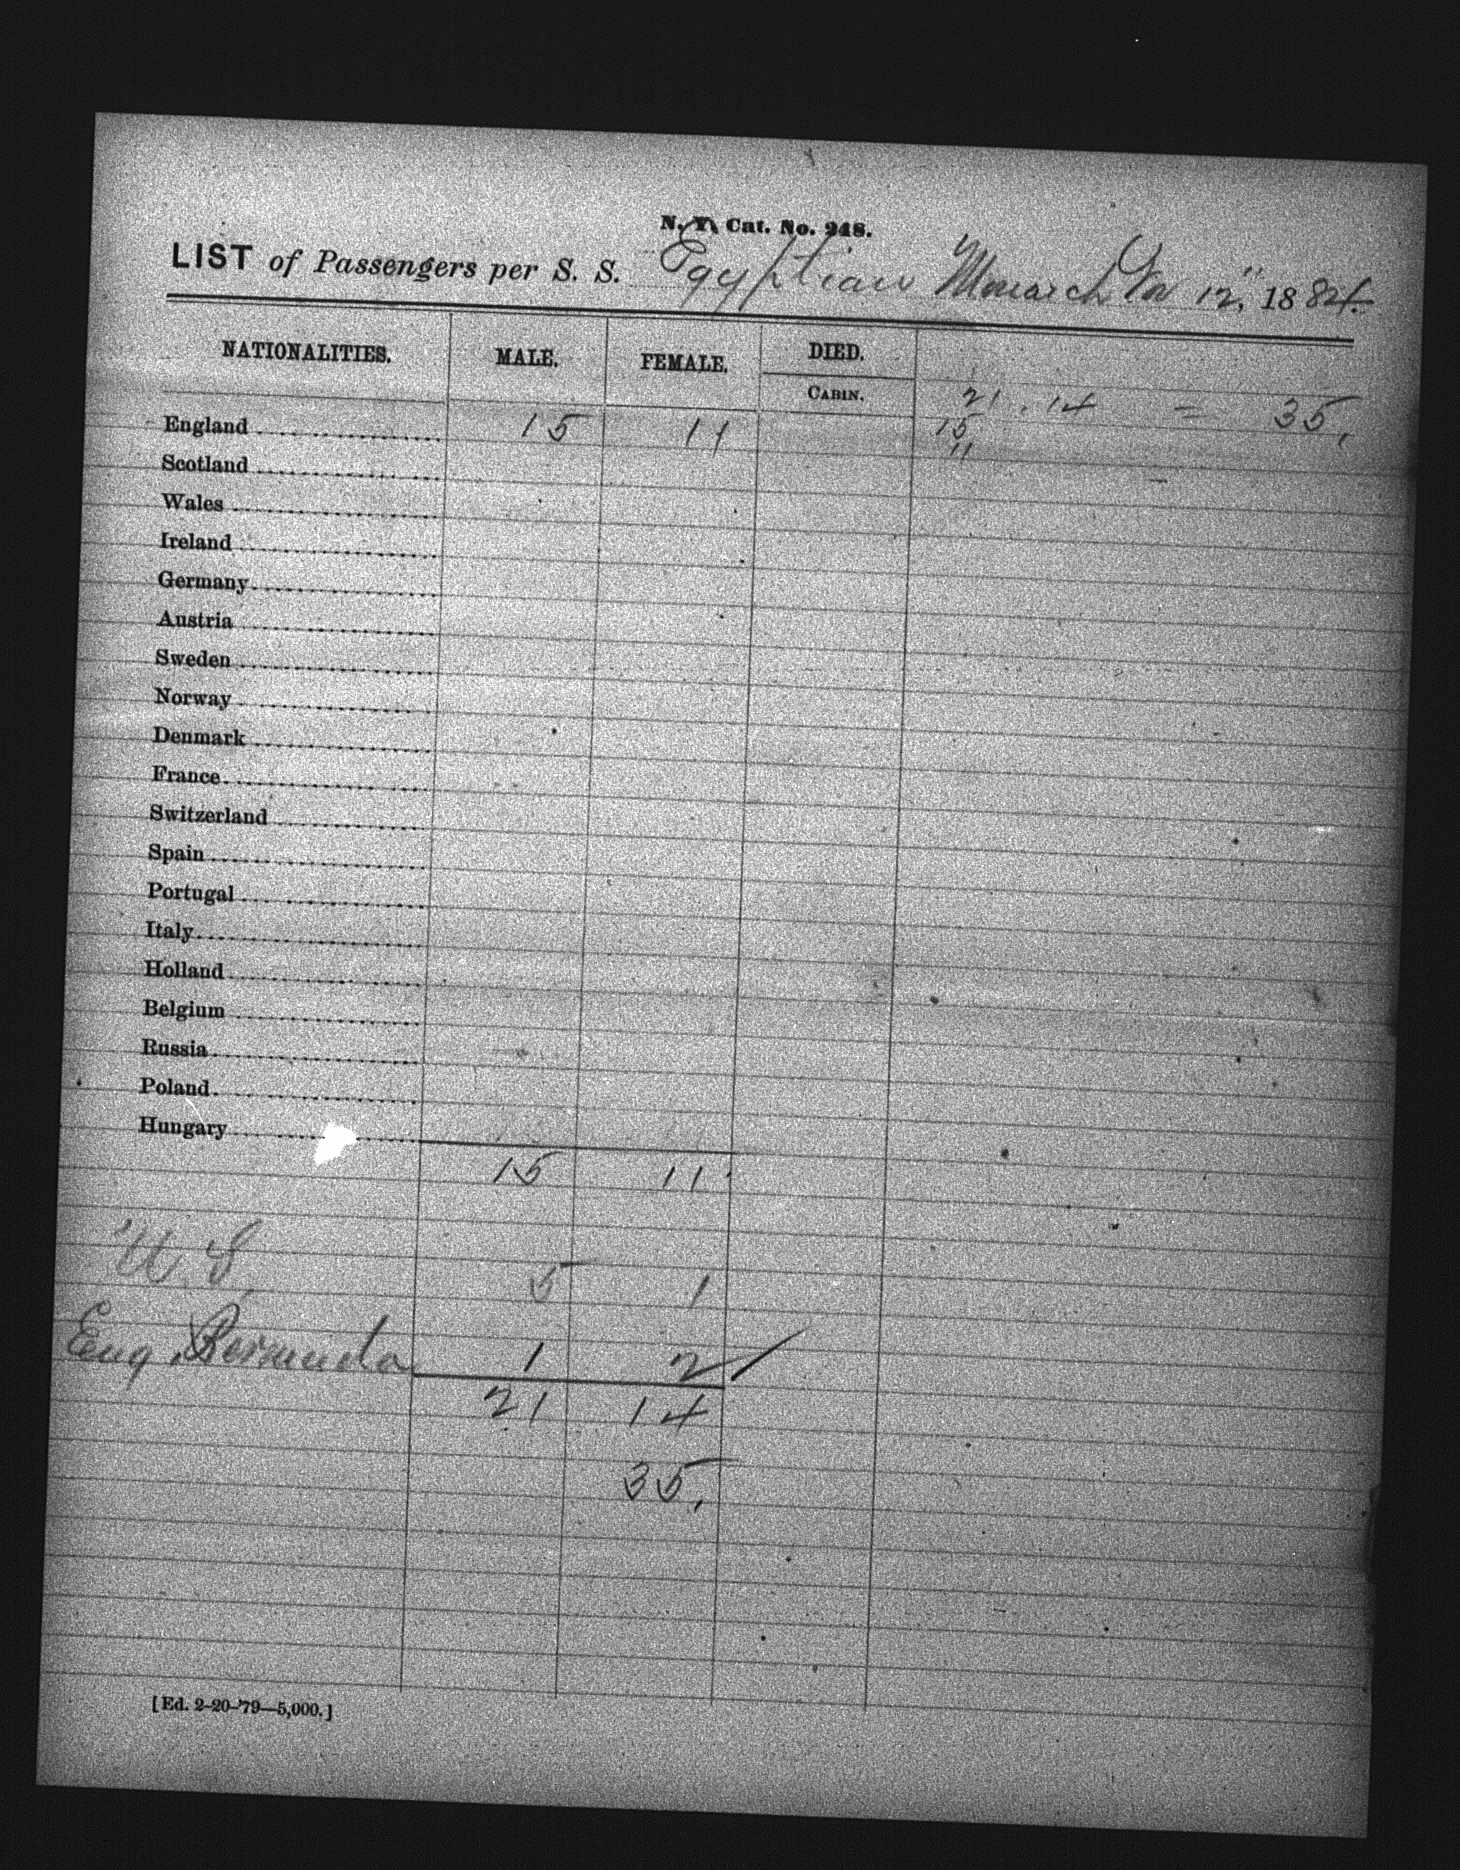 N. Y. Cat. No. 948.
LIST of Passengers per S. S. Egyptian Monarch Nov 12", 1884.
NATIONALITIES. MALE. FEMALE. DIED.
CABIN.
21. 14 = 35,
England 15 11 15
11
Scotland
Wales
Ireland
Germany
Austria
Sweden
Norway
Denmark
France
Switzerland
Spain
Portugal
Italy
Holland
Belgium
Russia
Poland
Hungary
15 11
U. S. 5 1
Eng. Bermuda 1 2
21 14
35,
[Ed. 2-20-'79—5,000.]